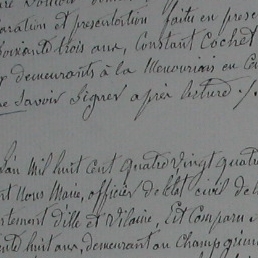 aration et présentation faite en prese
soixante trois ans, Constant Cochet
demeurants à la
Savoir Signer après lecture ./.
l'an Mil huit cent quatre vingt quatr
Nous Maire, officier de l'état civil de
artement d'Ille et Vilaine, Est Comparu
ente huit ans, demeurant au Champ